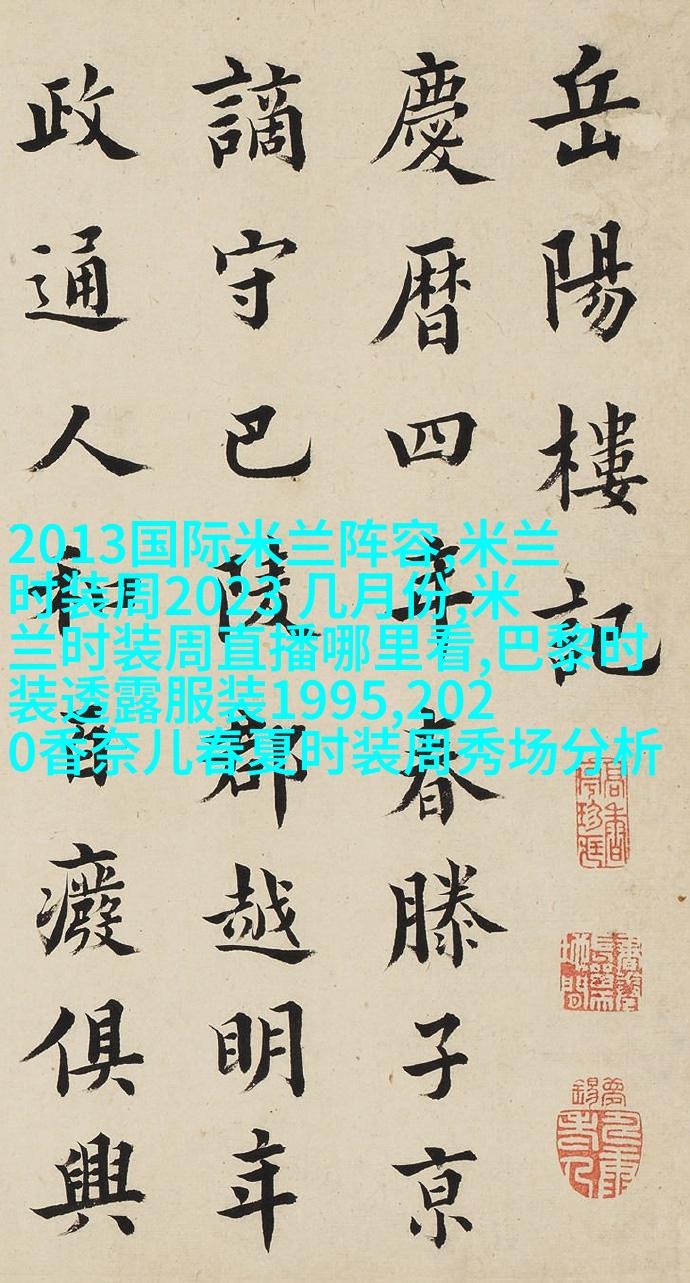 岳陽樓記
慶曆四年春滕子京
謫守巴陵郡越明年
政通人和百癈俱興
2013国际米兰阵容,米兰
时装周2023 几月份,米
兰时装周直播哪里看,巴黎时
装透露服装1995,202
0香奈儿春夏时装周秀场分析